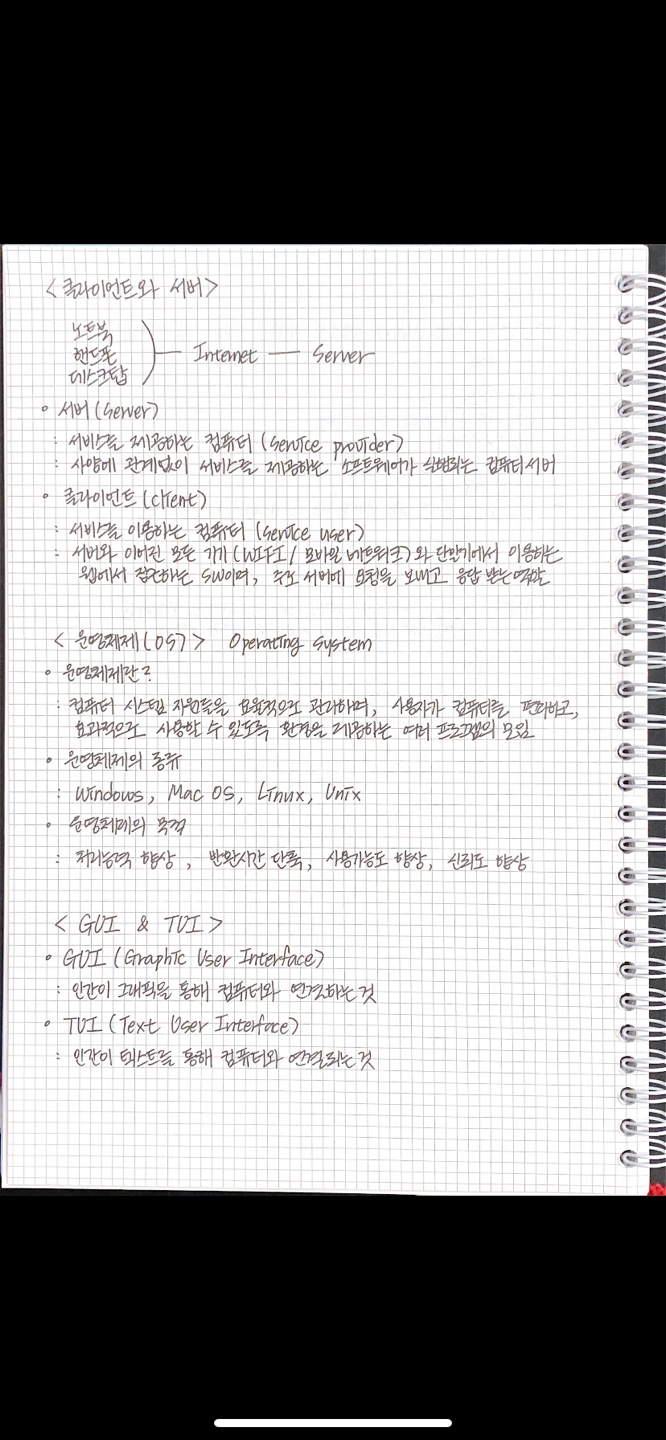 <클라이언트와 서버>
노트북
핸드폰 — Internet — Server
데스크탑
• 서버(Server)
: 서비스를 제공하는 컴퓨터 (Service provider)
: 사양에 관계없이 서비스를 제공하는 소프트웨어가 실행되는 컴퓨터 서버
• 클라이언트(client)
: 서비스를 이용하는 컴퓨터 (Service user)
: 서버와 이어진 모든 기기(WIFI/모바일 네트워크)와 단말기에서 이용하는
웹에서 접근하는 SW이며, 주로 서버에 요청을 보내고 응답 받는 역할
<운영체제(OS)> Operating System
• 운영체제란?
: 컴퓨터 시스템 자원들을 효율적으로 관리하며, 사용자가 컴퓨터를 편리하고,
효과적으로 사용할 수 있도록 환경을 제공하는 여러 프로그램의 모임
• 운영체제의 종류
: Windows, Mac OS, Linux, Unix
• 운영체제의 목적
: 처리능력 향상, 반환시간 단축, 사용가능도 향상, 신뢰도 향상
< GUI & TUI >
• GUI (Graphic User Interface)
: 인간이 그래픽을 통해 컴퓨터와 연결하는 것
• TUI (Text User Interface)
: 인간이 텍스트를 통해 컴퓨터와 연결되는 것